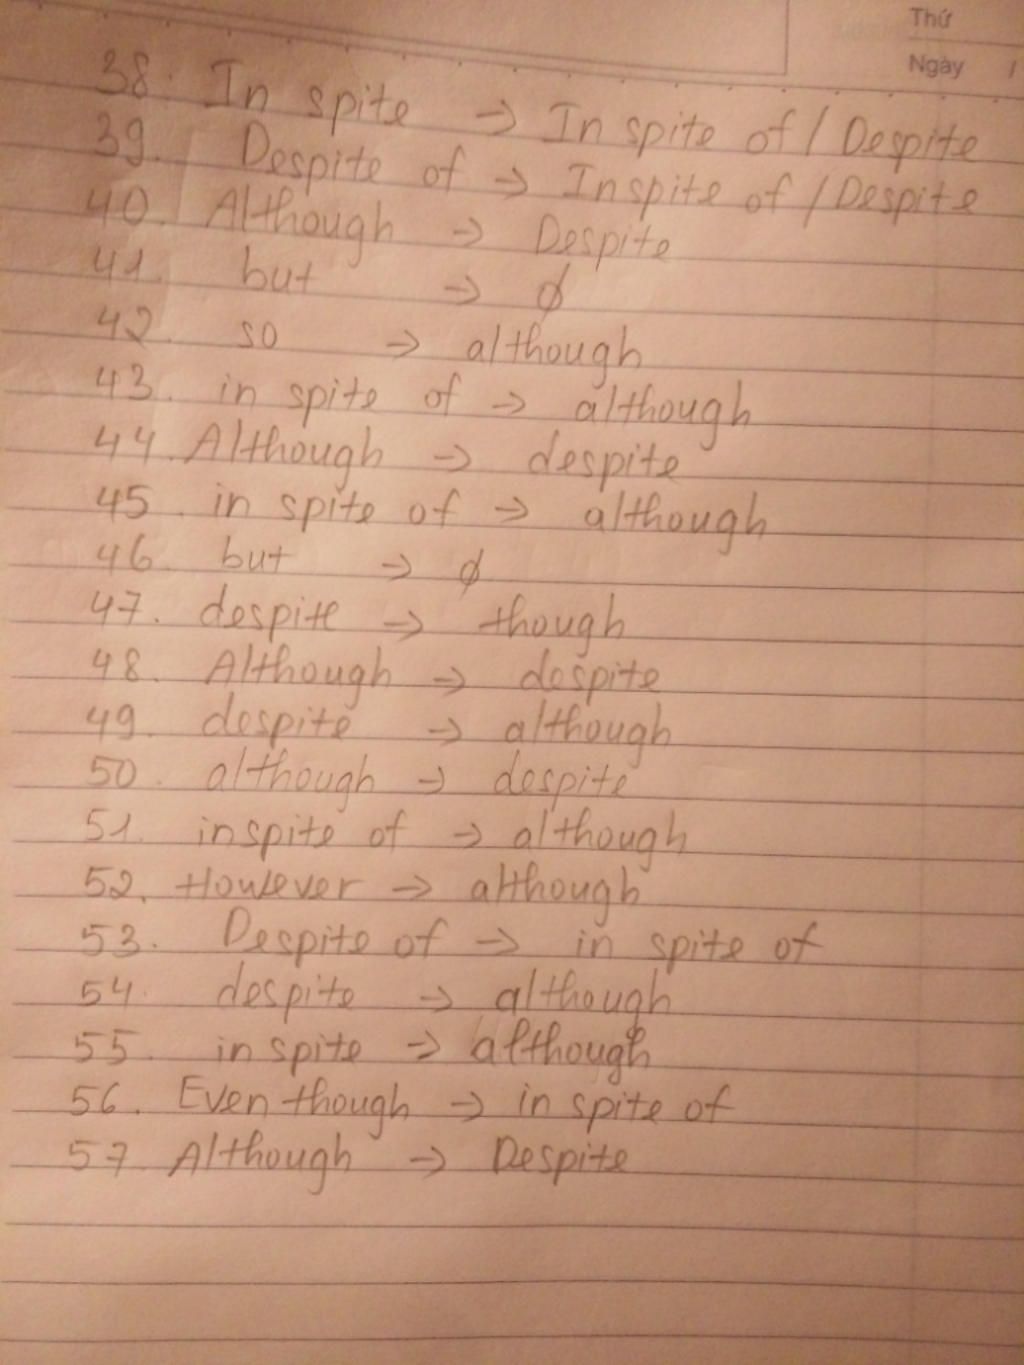 Thứ
Ngày /
38. In spite → In spite of / Despite
39. Despite of → Inspite of / Despite
40. Although → Despite
41. but → ∅
42. so → although
43. in spite of → although
44. Although → despite
45. in spite of → although
46. but → ∅
47. despite → though
48. Although → despite
49. despite → although
50. although → despite
51. inspite of → although
52. However → although
53. Despite of → in spite of
54. despite → although
55. in spite → although
56. Even though → in spite of
57. Although → Despite